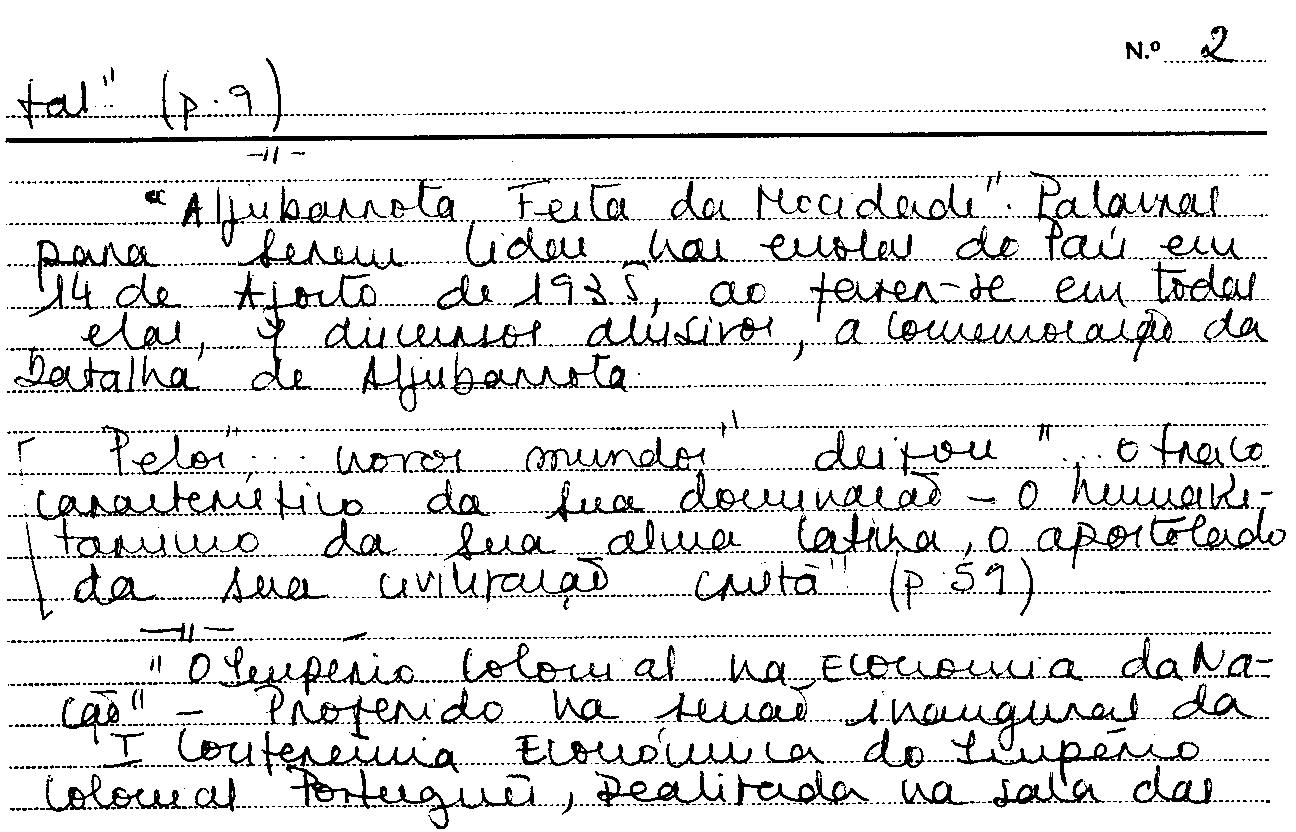 N.º 2
tal" (p. 9)
-11-
"Aljubarrota, Festa da Mocidade". Palavras
para serem lidas nas escolas do País em
14 de Agosto de 1935, ao fazer-se em todas
elas, discursos alusivos, a comemoração da
Batalha de Aljubarrota.
Pelos "... novos mundos" deixou "... o traço
característico da sua dominação - o humani-
tarismo da sua alma latina, o apostolado
da sua civilização cristã" (p. 59)
-11-
"O Império Colonial na Economia da Na-
ção" - Proferido na sessão inaugural da
I Conferência Económica do Império
Colonial Português, realizada na sala das